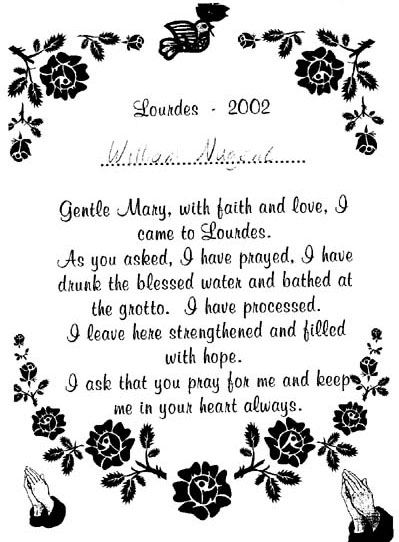 Lourdes - 2002
William Nugent
Gentle Mary, with faith and love, I
came to Lourdes.
As you asked, I have prayed, I have
drunk the blessed water and bathed at
the grotto. I have processed.
I leave here strengthened and filled
with hope.
I ask that you pray for me and keep
me in your heart always.